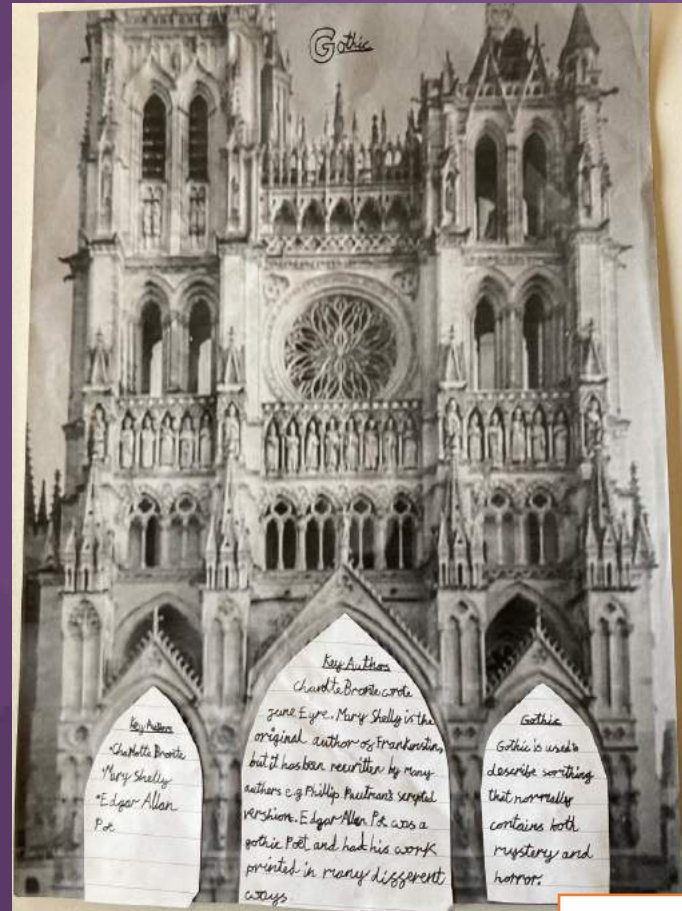 Gothic
Key Authors
•Charlotte Bronte
•Mary Shelly
•Edgar Allan
Poe
Key Authors
Charolte Bronte wrote
Jane Eyre. Mary Shelly is the
original author of Frankenstin,
but it has been rewritten by many
authers e.g Phillip Pullman's scripted
vershion. Edgar Allen Poe was a
gothic Poet and had his work
printed in many different
ways
Gothic
Gothic is used to
describe somthing
that normally
contains both
mystery and
horror.